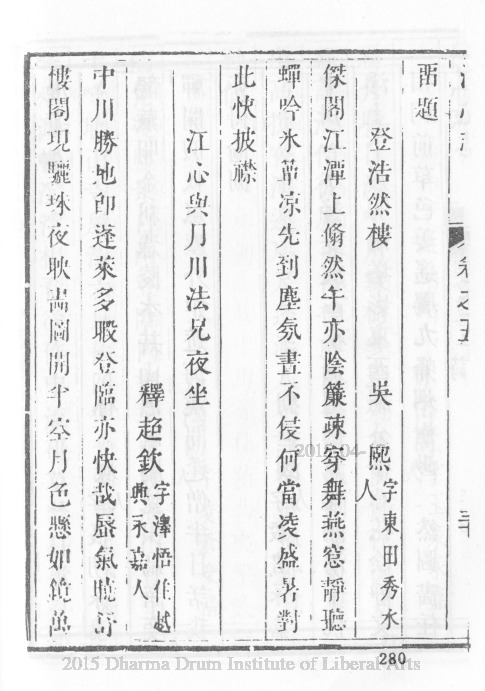 卷之五
畱題
登浩然樓 吳熙 字東田秀水人
傑閣江潭上翛然午亦陰簾疎穿舞燕窓靜聽
蟬吟氷簟凉先到塵氛晝不侵何當凌盛暑對
此快披襟
江心與月川法兄夜坐
釋超欽 字澤悟住越典永嘉人
中川勝地卽蓬萊多暇登臨亦快哉蜃氣曉舒
樓閣現驪珠夜映畫圖開半空月色懸如鏡萬
280
2015 Dharma Drum Institute of Liberal Arts